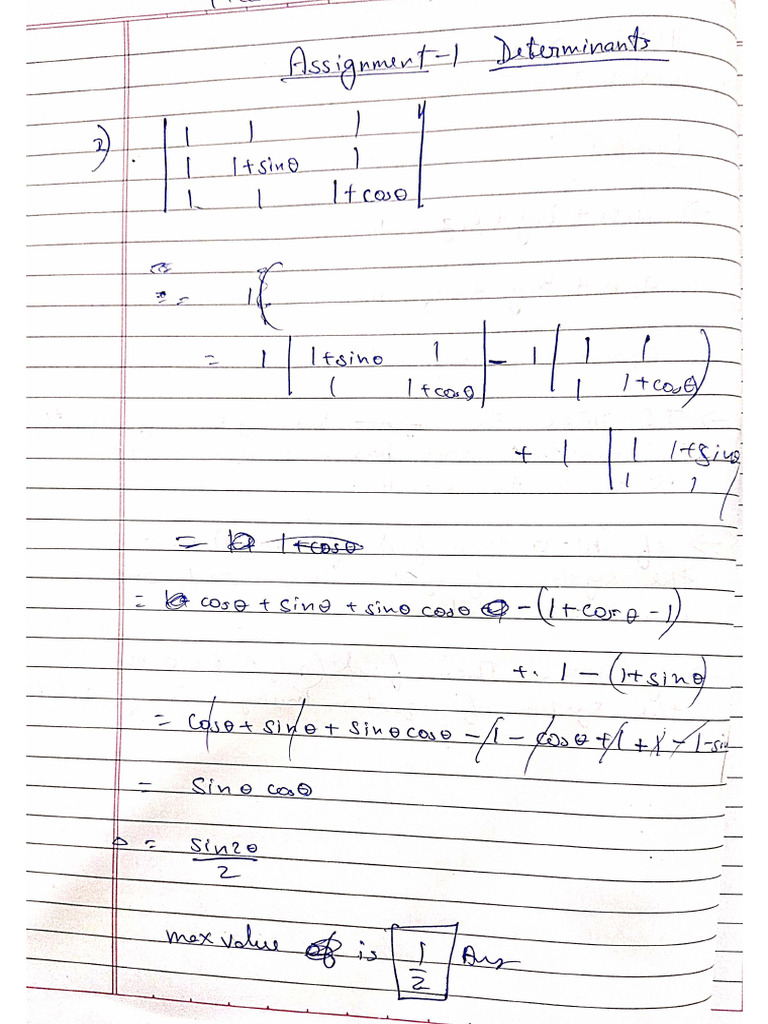 Assignment-1 Determinants
2). | 1 1 1 |
| 1 1+sinθ 1 |
| 1 1 1+cosθ |
= 1(
= 1 | 1+sinθ 1 | - 1 | 1 1 |
| 1 1+cosθ | | 1 1+cosθ |
+ 1 | 1 1+sinθ |
| 1 1 |
= 1+cosθ
= cosθ + sinθ + sinθ cosθ - (1+cosθ -1)
+ . 1 - (1+sinθ)
= cosθ + sinθ + sinθ cosθ - 1 - cosθ + 1 + 1 - 1 - sin
= sinθ cosθ
Δ = sin2θ
2
max value is 1 Ans
2